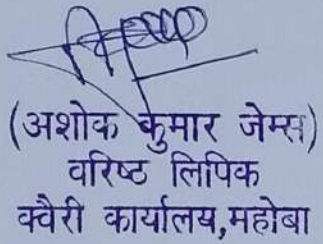 (अशोक कुमार जेम्स)
वरिष्ठ लिपिक
क्वैरी कार्यालय,महोबा